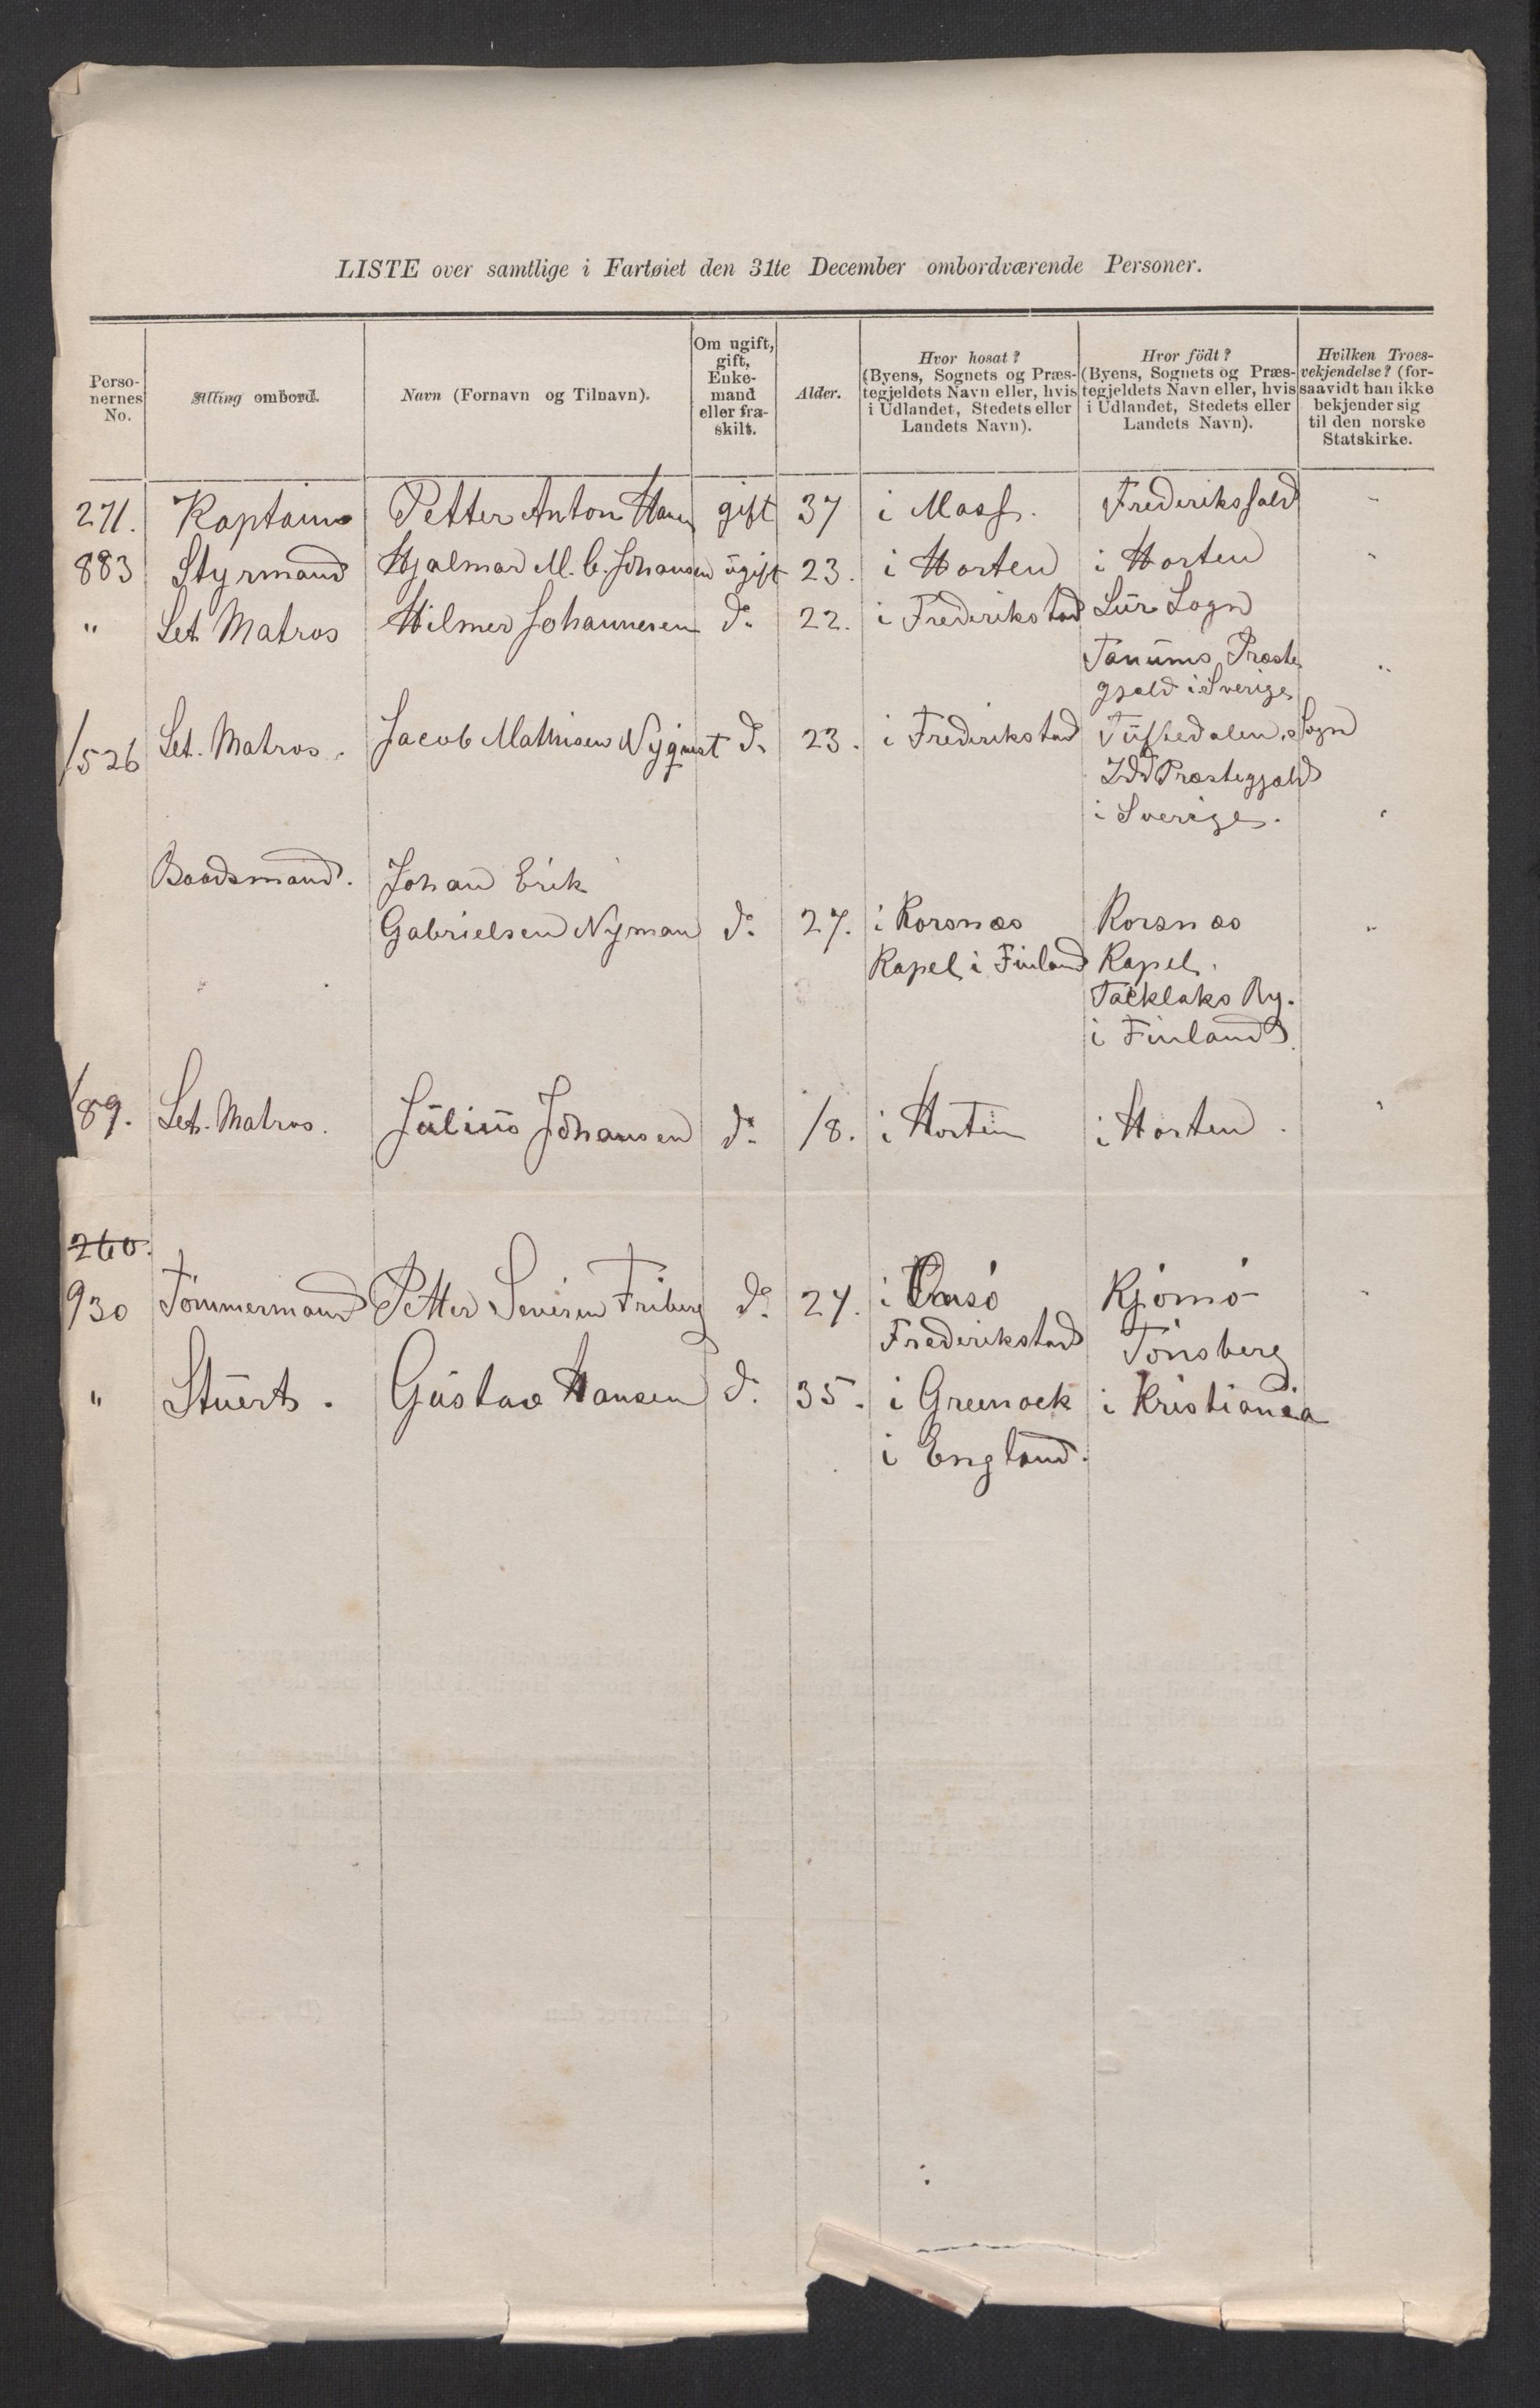 LISTE over samtlige i Fartøiet den 31te December ombordværende Personer.
Perso-
nernes
No.
Stilling ombord.
Navn (Fornavn og Tilnavn).
Om ugift,
gift,
Enke-
mand
eller fra-
skilt.
Alder.
Hvor hosat?
(Byens, Sognets og Præs-
tegjeldets Navn eller, hvis
i Udlandet, Stedets eller
Landets Navn).
Hvor födt?
(Byens, Sognets og Præs-
tegjeldets Navn eller, hvis
i Udlandet, Stedets eller
Landets Navn).
Hvilken Troes-
vekjendelse? (for-
saavidt han ikke
bekjender sig
til den norske
Statskirke.
271. Kaptain Petter Anton Hans gift 37 i Moss. Frederikshald "
883 Styrmand Hjalmar M. C. Johansen ugift 23. i Horten i Horten "
" Let Matros Hilmer Johannesen do 22. i Frederikstad Lur Sogn
Tanums Præste
gjald i Sverige "
1526 Let. Matros. Jacob Mathisen Nyquist do 23. i Frederikstad Tüstedalen. Sogn
Idd Præstegjald
i Sverige. "
Baadsmand. Johan Erik
Gabrielsen Nyman do 27. i Korsnæs Korsnæs "
Kapel i Finland Kapel.
Tacklaks By.
i Finland.
189. Let. Matros. Julius Johansen do 18. i Horten i Horten. "
260.
930 Tömmermand Petter Severin Friberg do 27. i Onsö Kjömö "
Frederikstad Tönsberg
" Stuert. Gustav Hansen do 35. i Greenock i Kristiania
i England.